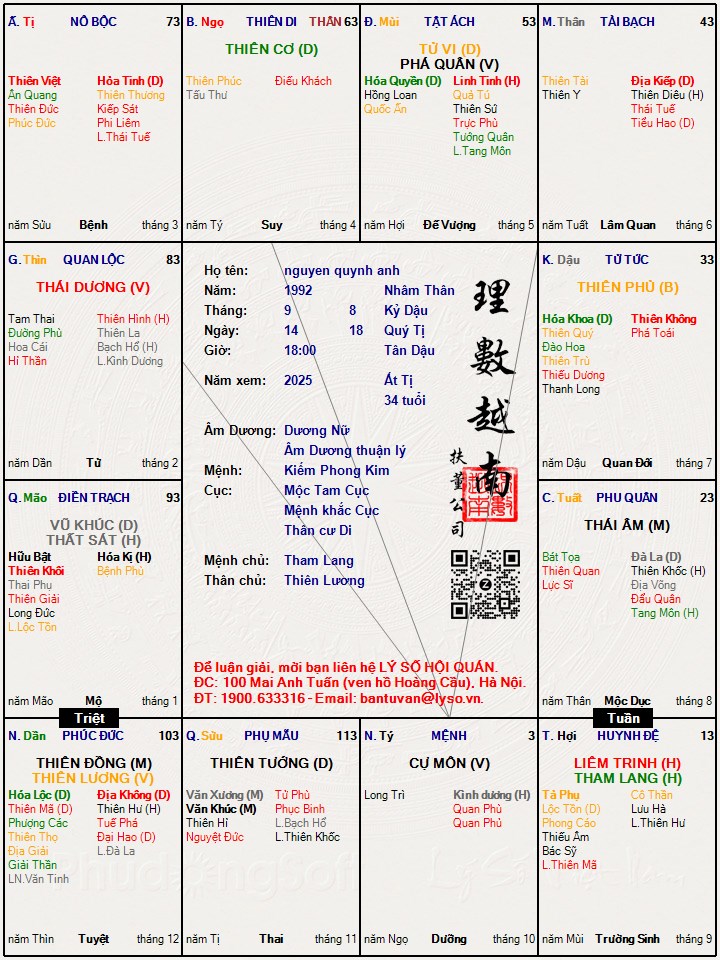 Ấ. Tị NÔ BỘC 73
Thiên Việt Hỏa Tinh (D)
Ân Quang Thiên Thương
Thiên Đức Kiếp Sát
Phúc Đức Phi Liêm
L.Thái Tuế
năm Sửu Bệnh tháng 3
B. Ngọ THIÊN DI THÂN 63
THIÊN CƠ (D)
Thiên Phúc Điếu Khách
Tấu Thư
năm Tý Suy tháng 4
Đ. Mùi TẬT ÁCH 53
TỬ VI (D)
PHÁ QUÂN (V)
Hóa Quyền (D) Linh Tinh (H)
Hồng Loan Quả Tú
Quốc Ấn Thiên Sứ
Trực Phù
Tướng Quân
L.Tang Môn
năm Hợi Đế Vượng tháng 5
M. Thân TÀI BẠCH 43
Thiên Tài Địa Kiếp (D)
Thiên Y Thiên Diêu (H)
Thái Tuế
Tiểu Hao (D)
năm Tuất Lâm Quan tháng 6
G. Thìn QUAN LỘC 83
THÁI DƯƠNG (V)
Tam Thai Thiên Hình (H)
Đường Phù Thiên La
Hoa Cái Bạch Hổ (H)
Hỉ Thần L.Kình Dương
năm Dần Tử tháng 2
Họ tên: nguyen quynh anh
Năm: 1992 Nhâm Thân
Tháng: 9 8 Kỷ Dậu
Ngày: 14 18 Quý Tị
Giờ: 18:00 Tân Dậu
Năm xem: 2025 Ất Tị
34 tuổi
Âm Dương: Dương Nữ
Âm Dương thuận lý
Mệnh: Kiếm Phong Kim
Cục: Mộc Tam Cục
Mệnh khắc Cục
Thân cư Di
Mệnh chủ: Tham Lang
Thân chủ: Thiên Lương
理數越南
扶董公司
Để luận giải, mời bạn liên hệ LÝ SỐ HỘI QUÁN.
ĐC: 100 Mai Anh Tuấn (ven hồ Hoàng Cầu), Hà Nội.
ĐT: 1900.633316 - Email: bantuvan@lyso.vn.
K. Dậu TỬ TỨC 33
THIÊN PHỦ (B)
Hóa Khoa (D) Thiên Không
Thiên Quý Phá Toái
Đào Hoa
Thiên Trù
Thiếu Dương
Thanh Long
năm Dậu Quan Đới tháng 7
Q. Mão ĐIỀN TRẠCH 93
VŨ KHÚC (D)
THẤT SÁT (H)
Hữu Bật Hóa Kị (H)
Thiên Khôi Bệnh Phù
Thai Phụ
Thiên Giải
Long Đức
L.Lộc Tồn
năm Mão Mộ tháng 1
C. Tuất PHU QUÂN 23
THÁI ÂM (M)
Bát Tọa Đà La (D)
Thiên Quan Thiên Khốc (H)
Lực Sĩ Địa Võng
Đẩu Quân
Tang Môn (H)
năm Thân Mộc Dục tháng 8
Triệt
Tuần
N. Dần PHÚC ĐỨC 103
THIÊN ĐỒNG (M)
THIÊN LƯƠNG (V)
Hóa Lộc (D) Địa Không (D)
Thiên Mã (D) Thiên Hư (H)
Phượng Các Tuế Phá
Thiên Thọ Đại Hao (D)
Địa Giải L.Đà La
Giải Thần
LN.Văn Tinh
năm Thìn Tuyệt tháng 12
Q. Sửu PHỤ MẪU 113
THIÊN TƯỚNG (D)
Văn Xương (M) Tử Phù
Văn Khúc (M) Phục Binh
Thiên Hỉ L.Bạch Hổ
Nguyệt Đức L.Thiên Khốc
năm Tị Thai tháng 11
N. Tý MỆNH 3
CỰ MÔN (V)
Long Trì Kình dương (H)
Quan Phù
Quan Phủ
năm Ngọ Dưỡng tháng 10
T. Hợi HUYNH ĐỆ 13
LIÊM TRINH (H)
THAM LANG (H)
Tả Phụ Cô Thần
Lộc Tồn (D) Lưu Hà
Phong Cáo L.Thiên Hư
Thiếu Âm
Bác Sỹ
L.Thiên Mã
năm Mùi Trường Sinh tháng 9